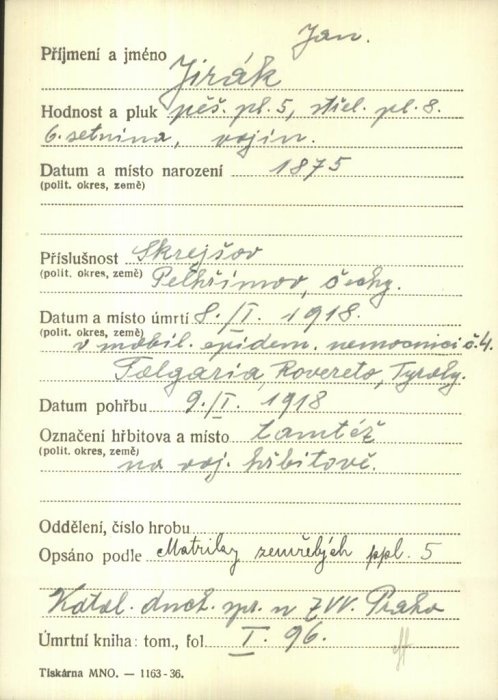 Jan.
Příjmení a jméno Jirák
Hodnost a pluk pěš. pl. 5, střel. pl. 8.
6. setnina, vojín.
Datum a místo narození 1875
(polit. okres, země)
Příslušnost Skrejšov
(polit. okres, země) Pelhřimov, Čechy.
Datum a místo úmrtí 8./I. 1918.
(polit. okres, země)
v mobil. epidem. nemocnici č. 4.
Folgaria, Rovereto, Tyroly.
Datum pohřbu 9./I. 1918
Označení hřbitova a místo tamtéž
(polit. okres, země)
na voj. hřbitově.
Oddělení, číslo hrobu
Opsáno podle Matriky zemřelých ppl. 5
Katol. duch. spr. u ZVV. Praha
Úmrtní kniha: tom., fol. I. 96.
Tiskárna MNO. — 1163-36.